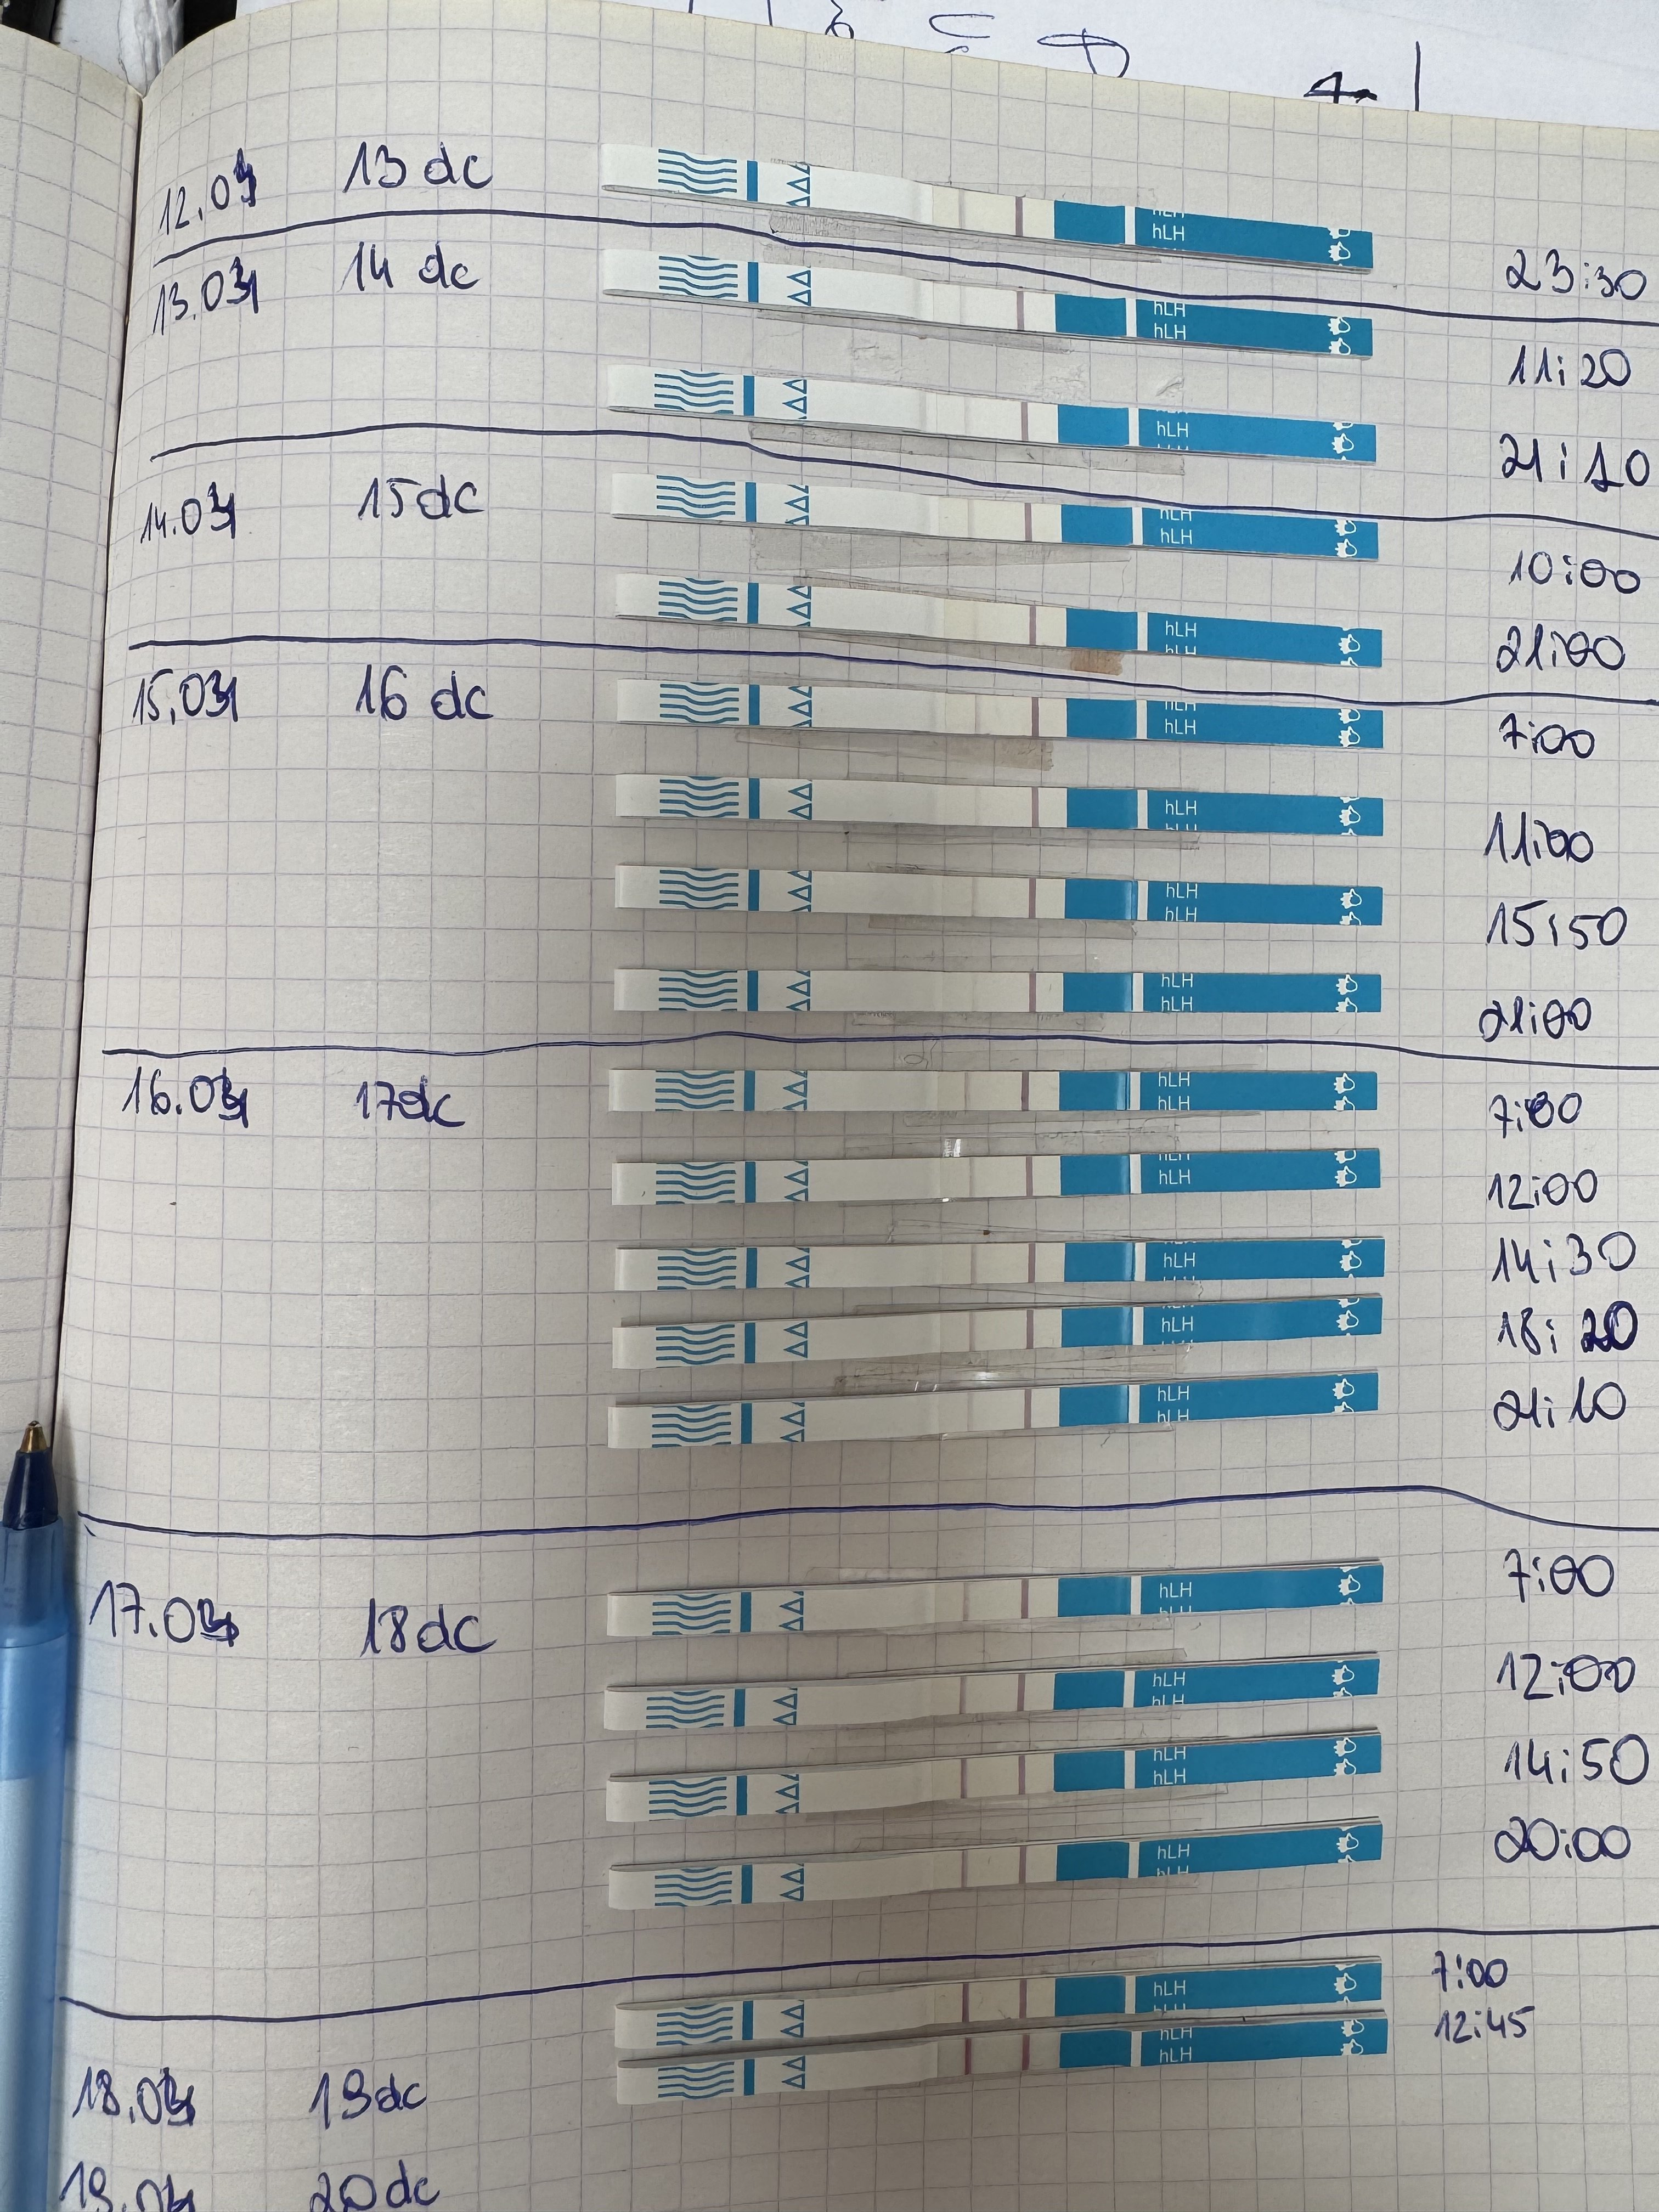 12.04 13 dc hLH 23:30
13.04 14 dc hLH
hLH 11:20
hLH 21:10
14.04 15dc hLH 10:00
hLH 21:00
15.04 16 dc hLH 7:00
hLH 11:00
hLH
hLH 15:50
hLH
hLH 21:00
16.04 17dc hLH
hLH 7:00
hLH 12:00
hLH 14:30
hLH 18:20
hLH 21:10
17.04 18dc hLH 7:00
hLH
hLH 12:00
hLH
hLH 14:50
hLH 20:00
hLH 7:00
hLH
hLH 12:45
18.04 19dc
19.04 20dc